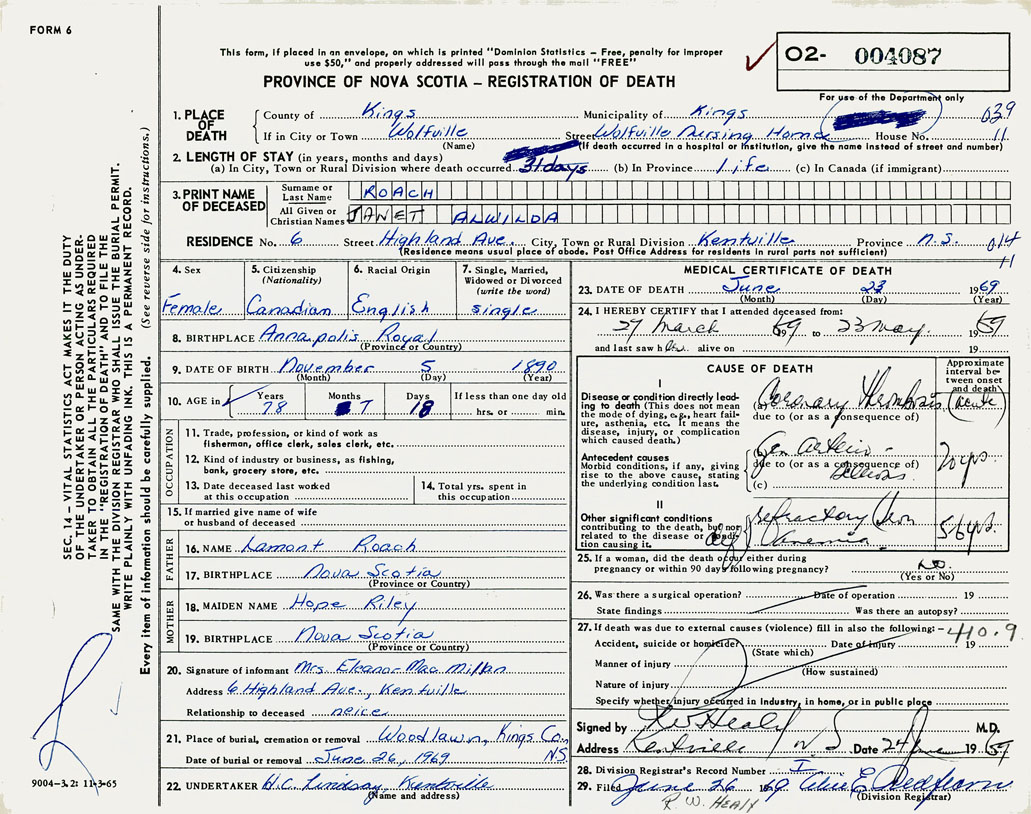 FORM 6
This form, if placed in an envelope, on which is printed "Dominion Statistics – Free, penalty for improper
use $50," and properly addressed will pass through the mail "FREE"
PROVINCE OF NOVA SCOTIA – REGISTRATION OF DEATH
O2- 004087
For use of the Department only
039
11
1. PLACE OF DEATH
County of Kings Municipality of Kings
If in City or Town Wolfville Street Wolfville Nursing Home House No.
(Name) (If death occurred in a hospital or institution, give the name instead of street and number)
2. LENGTH OF STAY (in years, months and days)
(a) In City, Town or Rural Division where death occurred 31 days (b) In Province Life (c) In Canada (if immigrant)
3. PRINT NAME OF DECEASED
Surname or Last Name ROACH
All Given or Christian Names JANET ALWILDA
RESIDENCE No. 6 Street Highland Ave. City, Town or Rural Division Kentville Province N.S. 014
11
(Residence means usual place of abode. Post Office Address for residents in rural parts not sufficient)
4. Sex
Female
5. Citizenship
(Nationality)
Canadian
6. Racial Origin
English
7. Single, Married,
Widowed or Divorced
(write the word)
single
8. BIRTHPLACE Annapolis Royal
(Province or Country)
9. DATE OF BIRTH November 5 1890
(Month) (Day) (Year)
10. AGE in Years 78 Months 7 Days 18 If less than one day old
hrs. or min.
OCCUPATION
11. Trade, profession, or kind of work as
fisherman, office clerk, sales clerk, etc.
12. Kind of industry or business, as fishing,
bank, grocery store, etc.
13. Date deceased last worked
at this occupation
14. Total yrs. spent in
this occupation
15. If married give name of wife
or husband of deceased
FATHER
16. NAME Lamont Roach
17. BIRTHPLACE Nova Scotia
(Province or Country)
MOTHER
18. MAIDEN NAME Hope Riley
19. BIRTHPLACE Nova Scotia
(Province or Country)
20. Signature of informant Mrs. Eleanor MacMillan
Address 6 Highland Ave., Kentville
Relationship to deceased neice
21. Place of burial, cremation or removal Woodlawn, Kings Co.,
Date of burial or removal June 26, 1969 N.S.
22. UNDERTAKER H.C. Lindsay Kentville
(Name and address)
MEDICAL CERTIFICATE OF DEATH
23. DATE OF DEATH June 23 1969
(Month) (Day) (Year)
24. I HEREBY CERTIFY that I attended deceased from:
27 March 69 to 23 May. 19 69
and last saw h alive on 19
CAUSE OF DEATH
Approximate
interval be-
tween onset
and death
I
Disease or condition directly lead-
ing to death (This does not
mean the mode of dying, e.g., heart fail-
ure, asthenia, etc. It means the
disease, injury, or complication
which caused death.)
(a) Coronary Thrombosis (acute)
due to (or as a consequence of)
Antecedent causes
Morbid conditions, if any, giving
rise to the above cause, stating
the underlying condition last.
(b) Gen Arterio-
due to (or as a consequence of)
sclerosis 20 yrs.
(c)
II
Other significant conditions
contributing to the death, but not
related to the disease or condi-
tion causing it.
refractory Iron
def Anemia 5-6 yrs.
25. If a woman, did the death occur either during
pregnancy or within 90 days following pregnancy? No.
(Yes or No)
26. Was there a surgical operation? Date of operation 19
State findings Was there an autopsy?
27. If death was due to external causes (violence) fill in also the following: – 410.9
Accident, suicide or homicide? Date of injury 19
(State which)
Manner of injury
(How sustained)
Nature of injury
Specify whether injury occurred in industry, in home, or in public place
Signed by RW Healy M.D.
Address Kentville NS Date 24 June 19 69
28. Division Registrar's Record Number
29. Filed June 26 1969
(Division Registrar)
R. W. HEALY
SEC. 14 – VITAL STATISTICS ACT MAKES IT THE DUTY
OF THE UNDERTAKER OR PERSON ACTING AS UNDER-
TAKER TO OBTAIN ALL THE PARTICULARS REQUIRED
IN THE "REGISTRATION OF DEATH" AND TO FILE THE
SAME WITH THE DIVISION REGISTRAR WHO SHALL ISSUE THE BURIAL PERMIT.
WRITE PLAINLY WITH UNFADING INK. THIS IS A PERMANENT RECORD.
Every item of information should be carefully supplied. (See reverse side for instructions.)
9004–3.2: 11-3-65